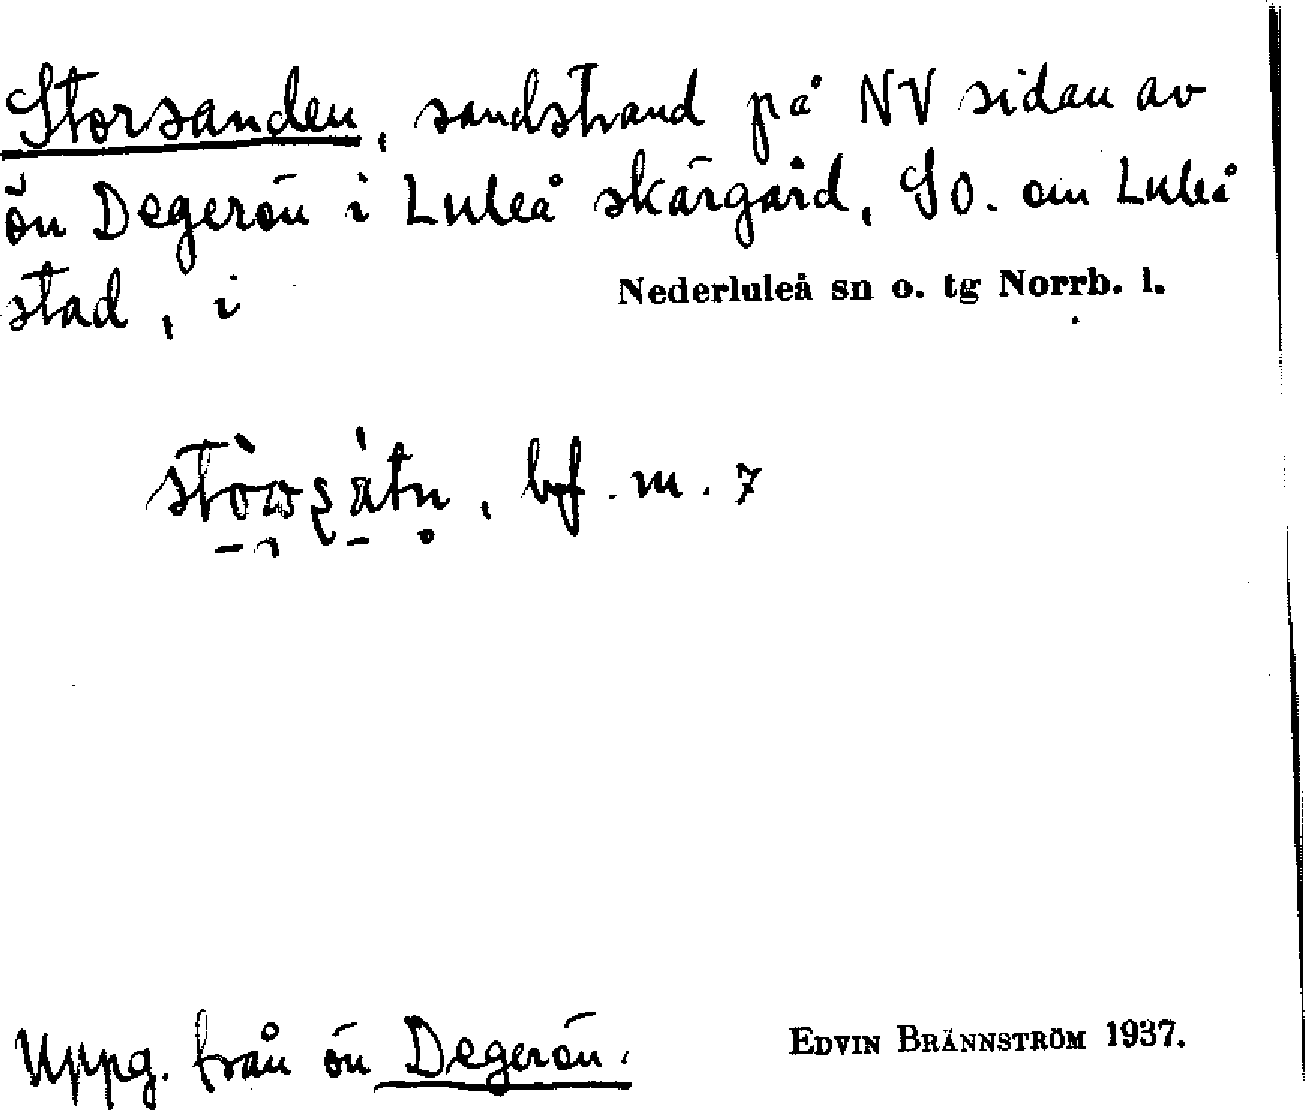 Storsanden, sandstrand på NV sidan av
ön Degerön i Luleå skärgård, SO. om Luleå
stad, i Nederluleå sn o. tg Norrb. l.
bf. m. 7
Uppg. från ön Degerön. EDVIN BRÄNNSTRÖM 1937.